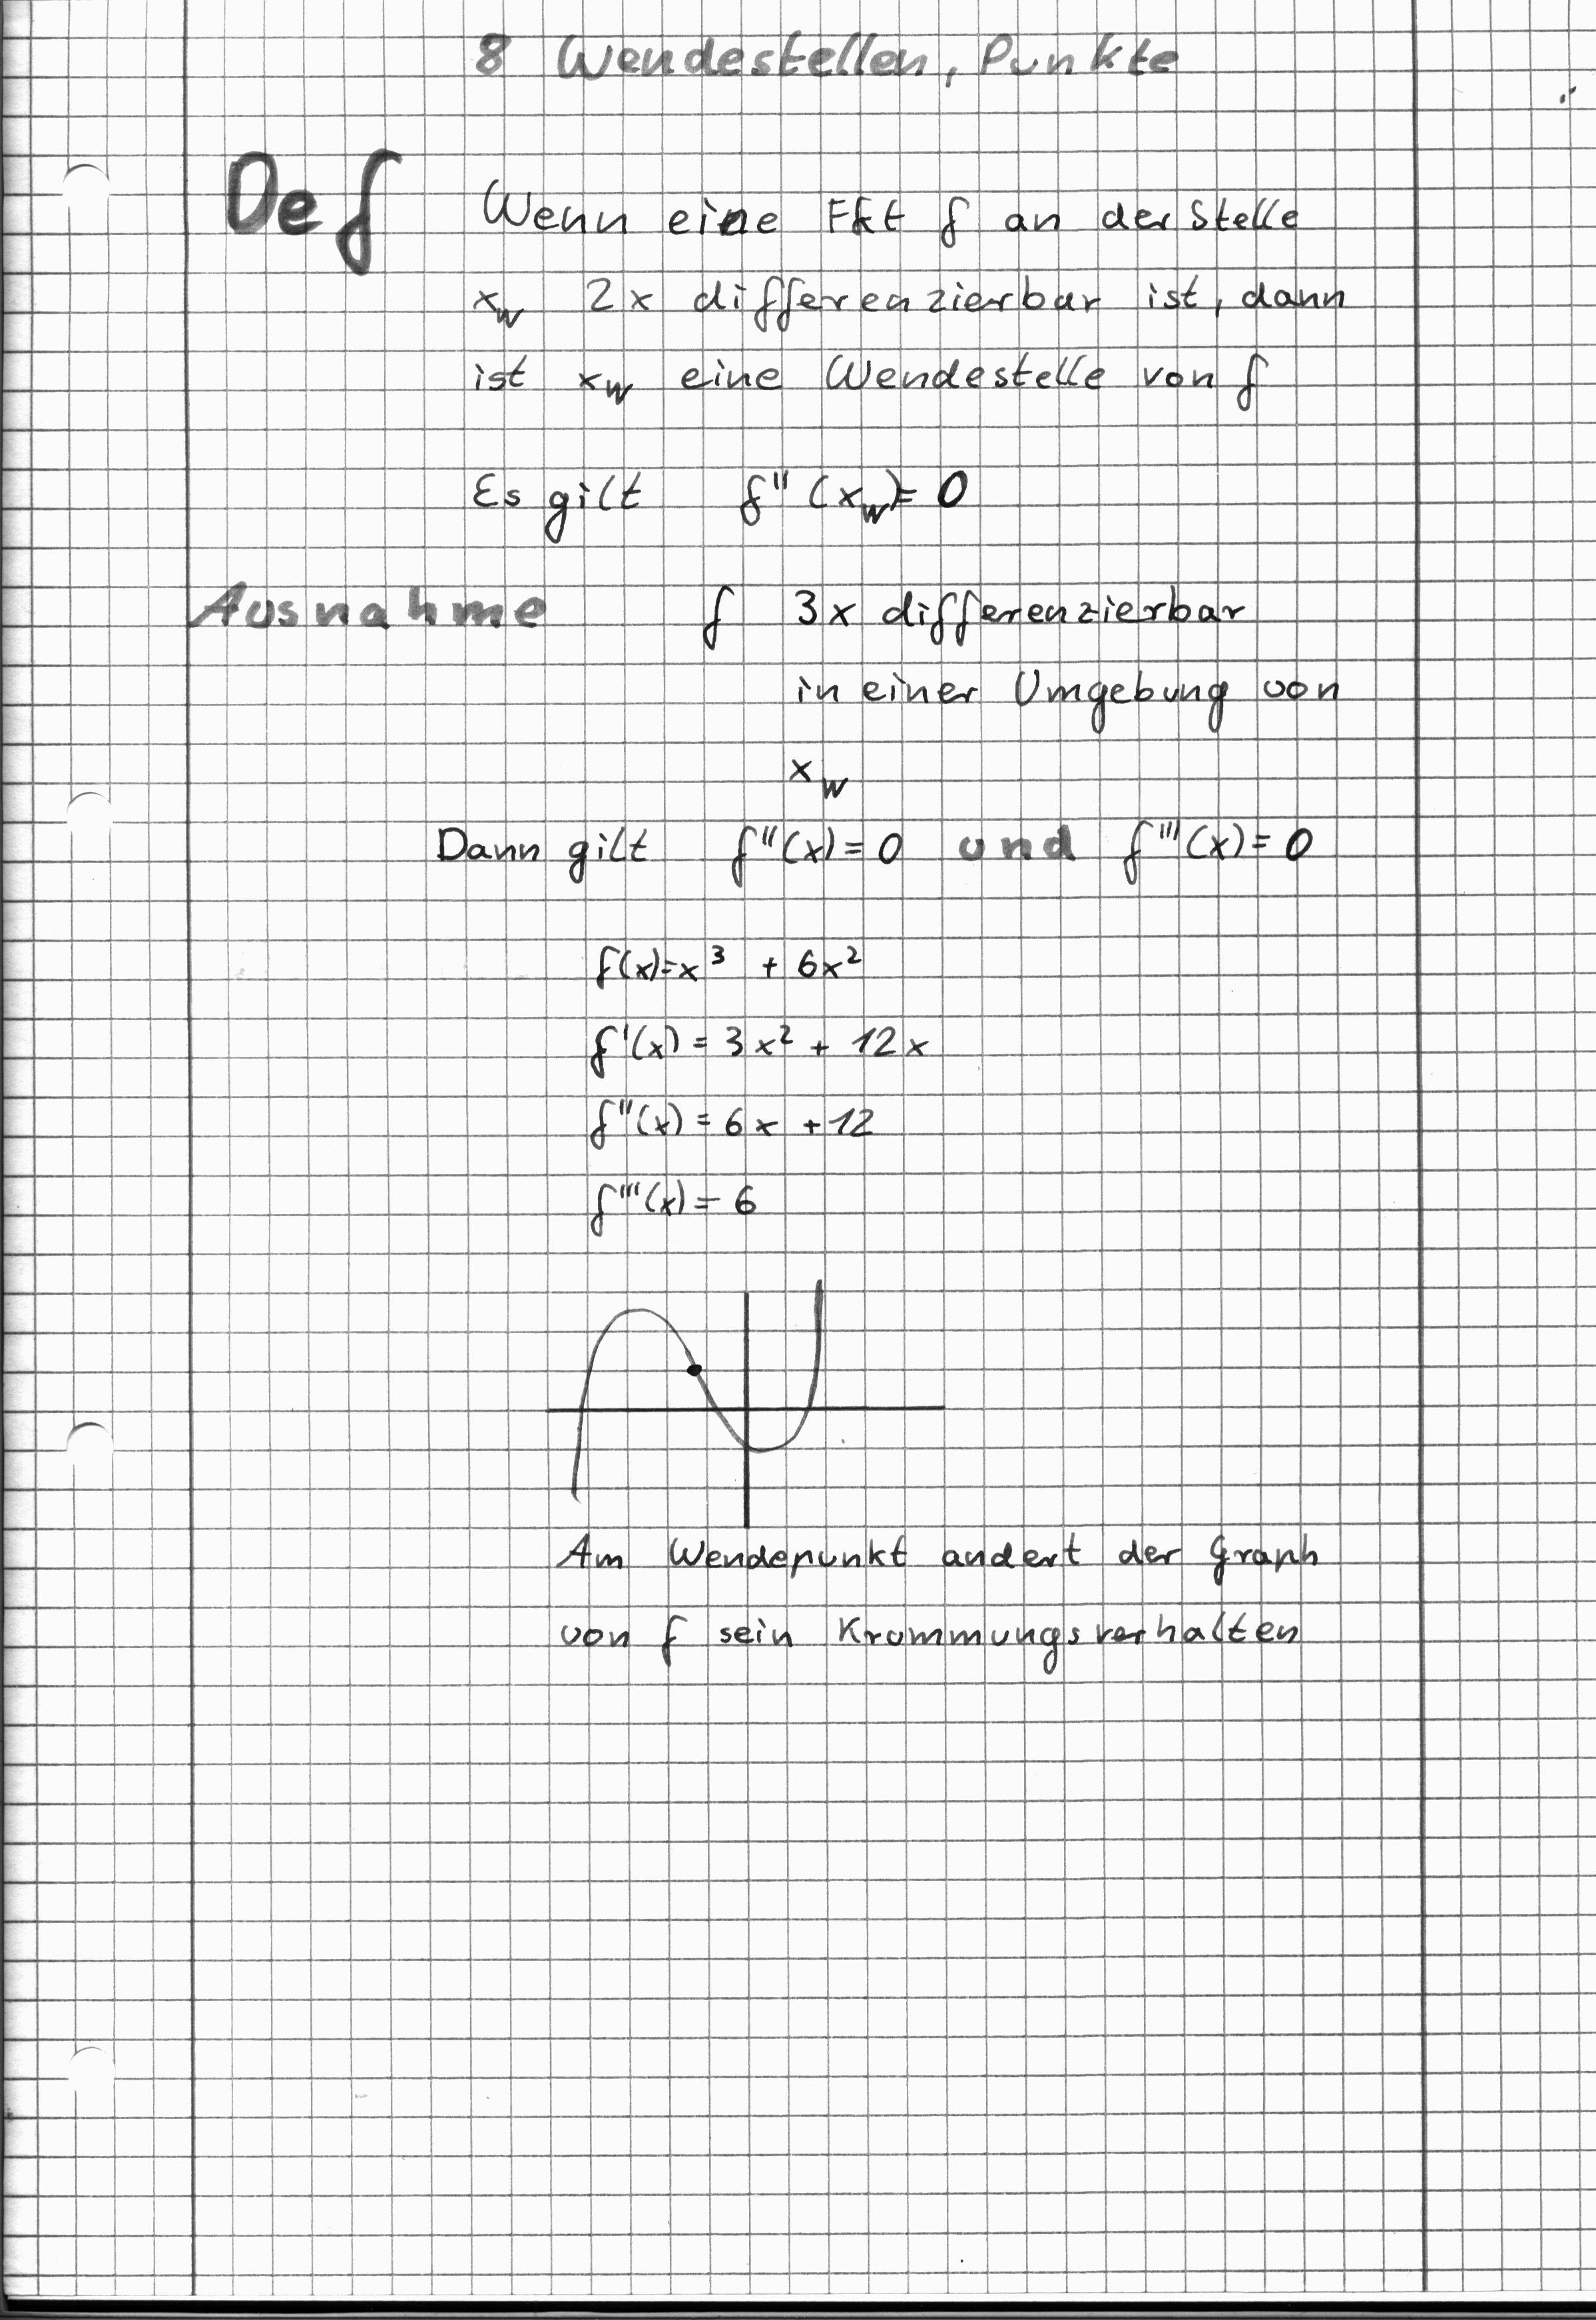 8 Wendestellen, Punkte
Def Wenn eine Fkt f an der Stelle
x_w 2x differenzierbar ist, dann
ist x_w eine Wendestelle von f
Es gilt f''(x_w) = 0
Ausnahme f 3x differenzierbar
in einer Umgebung von
x_w
Dann gilt f''(x) = 0 und f'''(x) = 0
f(x) = x³ + 6x²
f'(x) = 3x² + 12x
f''(x) = 6x + 12
f'''(x) = 6
Am Wendepunkt andert der Graph
von f sein Krummungsverhalten